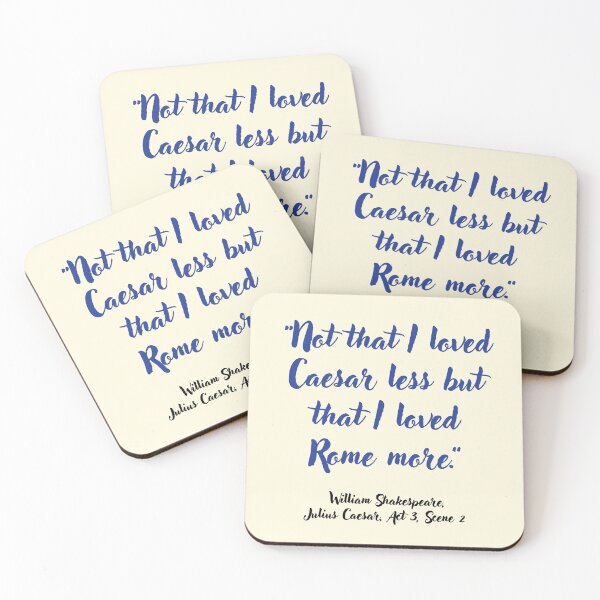 "Not that I loved
Caesar less but
that I loved
"Not that I loved
Caesar less but
that I loved
Rome more."
"Not that I loved
Caesar less but
that I loved
Rome more
William
Julius Caesar,
"Not that I loved
Caesar less but
that I loved
Rome more."
William Shakespeare,
Julius Caesar, Act 3, Scene 2